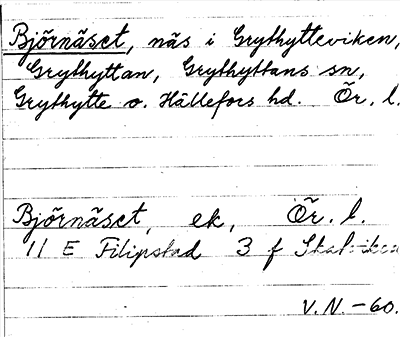 Björnäset, näs i Grythytteviken,
Grythyttan, Grythyttans sn,
Grythytte o. Hällefors hd. Ör. l.
Björnäset, ek, Ör. l.
11 E Filipstad 3 f
V.N. -60.